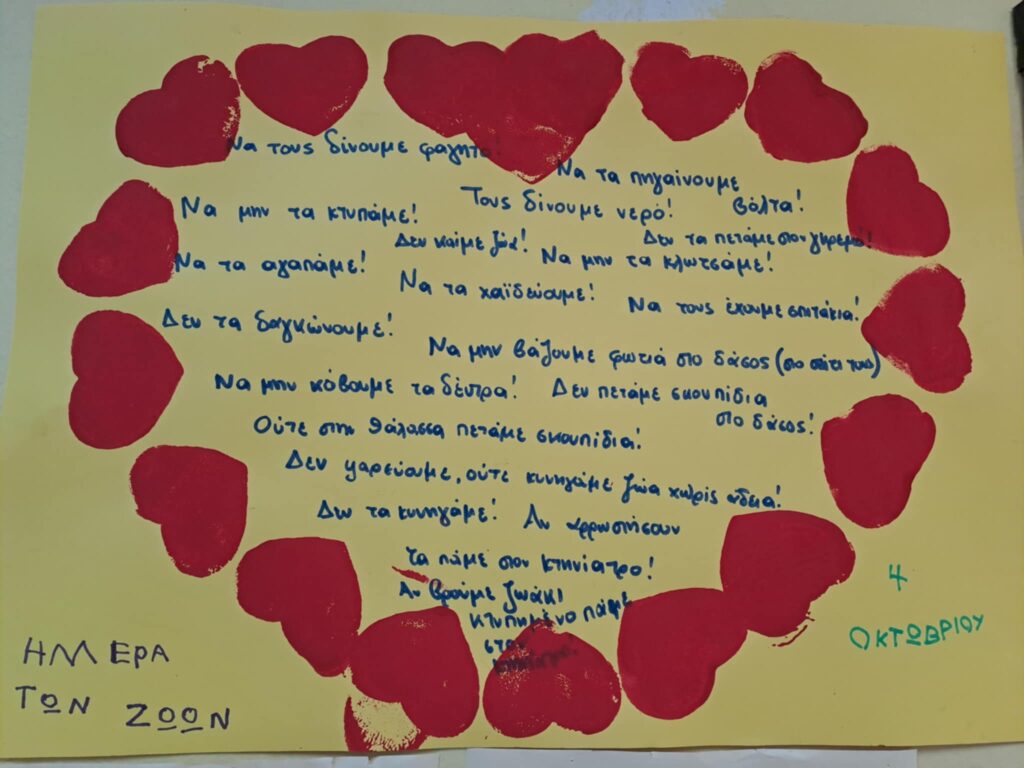 Να τους δίνουμε φαγητό!
Να τα πηγαίνουμε
βόλτα!
Τους δίνουμε νερό!
Να μην τα κτυπάμε!
Δεν καίμε ζώα!
Δεν τα πετάμε στον γκρεμό!
Να τα αγαπάμε!
Να μην τα κλωτσάμε!
Να τα χαϊδεύουμε!
Να τους έχουμε σπιτάκια!
Δεν τα δαγκώνουμε!
Να μην βάζουμε φωτιά στο δάσος (στο σπίτι τους)
Να μην κόβουμε τα δέντρα!
Δεν πετάμε σκουπίδια
στο δάσος!
Ούτε στην θάλασσα πετάμε σκουπίδια!
Δεν ψαρεύουμε, ούτε κυνηγάμε ζώα χωρίς άδεια!
Δεν τα κυνηγάμε!
Αν αρρωστήσουν
τα πάμε στον κτηνίατρο!
Αν βρούμε ζωάκι
κτυπημένο πάμε
στον
ΗΜΕΡΑ
ΤΩΝ ΖΩΩΝ
4
ΟΚΤΩΒΡΙΟΥ